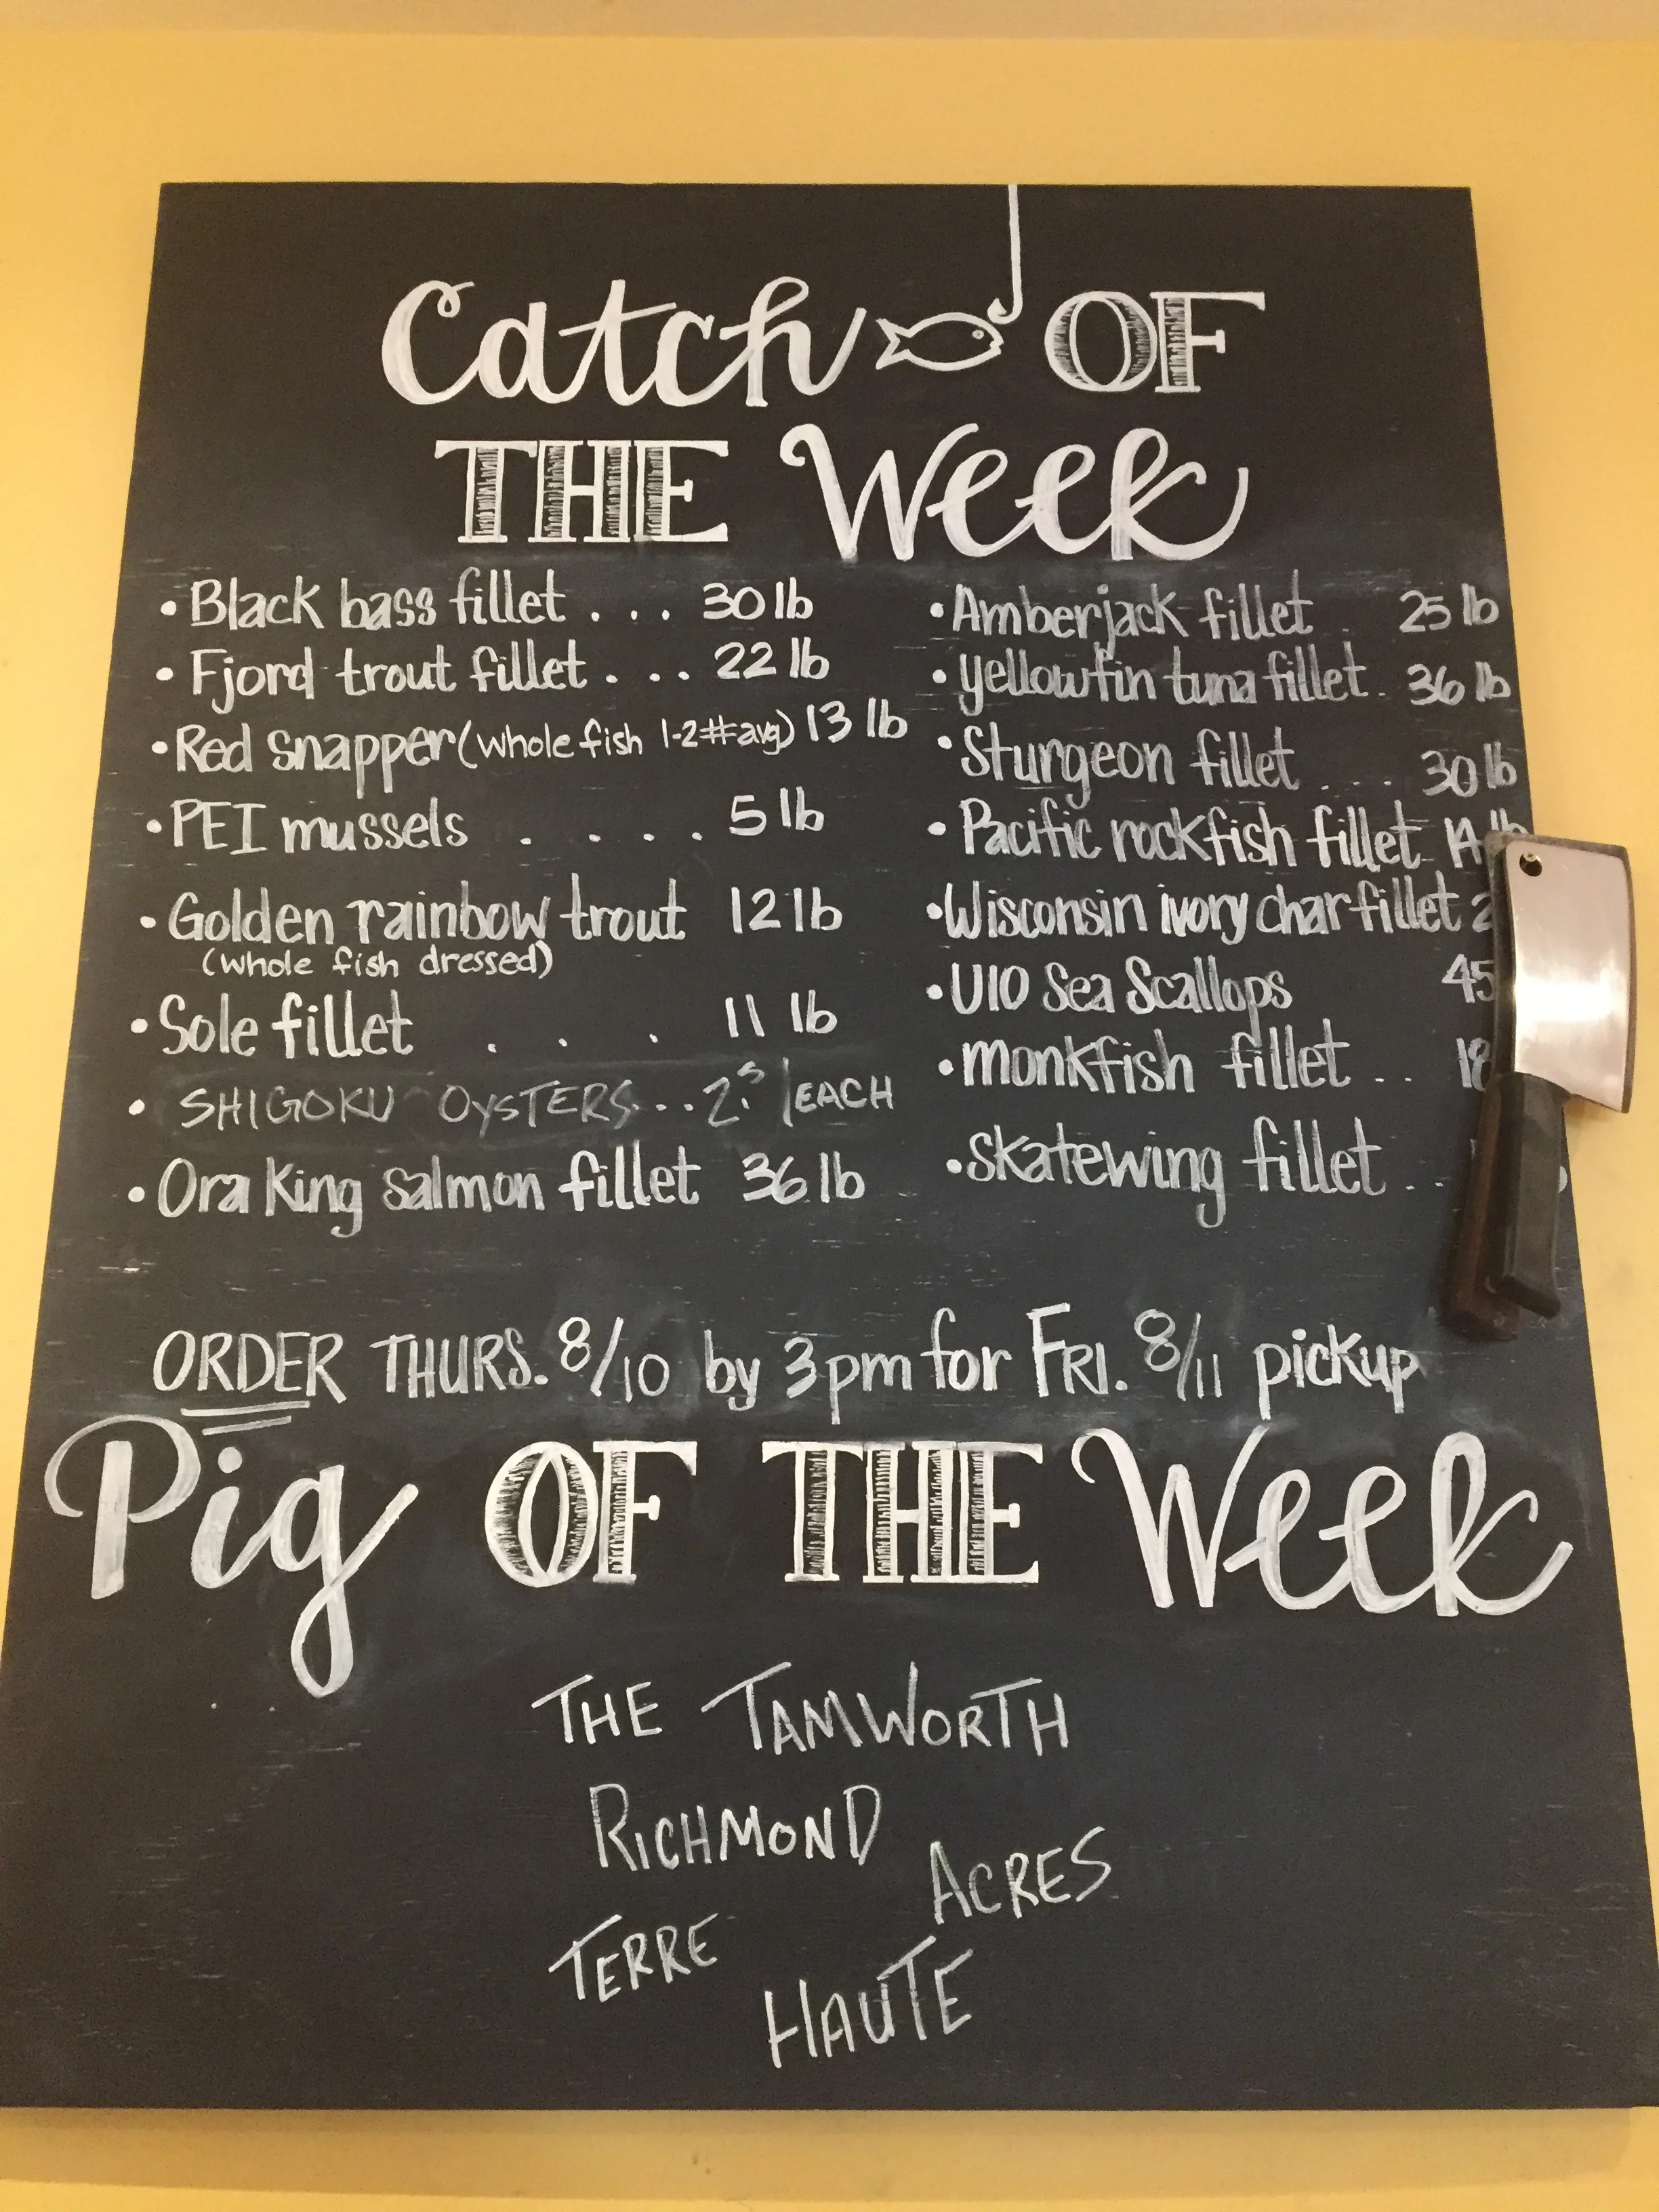 Catch OF
THE Week
• Black bass fillet . . . 30 lb
• Fjord trout fillet . . . 22 lb
• Red snapper (whole fish 1-2# avg) 13 lb
• PEI mussels . . . . 5 lb
• Golden rainbow trout 12 lb
(whole fish dressed)
• Sole fillet . . . 11 lb
• SHIGOKU OYSTERS... 2.5 /EACH
• Ora King salmon fillet 36 lb
• Amberjack fillet . 25 lb
• yellowfin tuna fillet . 36 lb
• Sturgeon fillet . . . . 30 lb
• Pacific rockfish fillet lb
• Wisconsin ivory char fillet
• U10 Sea Scallops 45
• monkfish fillet .. 18
• skatewing fillet ..
ORDER THURS. 8/10 by 3pm for FRI. 8/11 pickup
Pig OF THE Week
THE TAMWORTH
RICHMOND
ACRES
TERRE
HAUTE